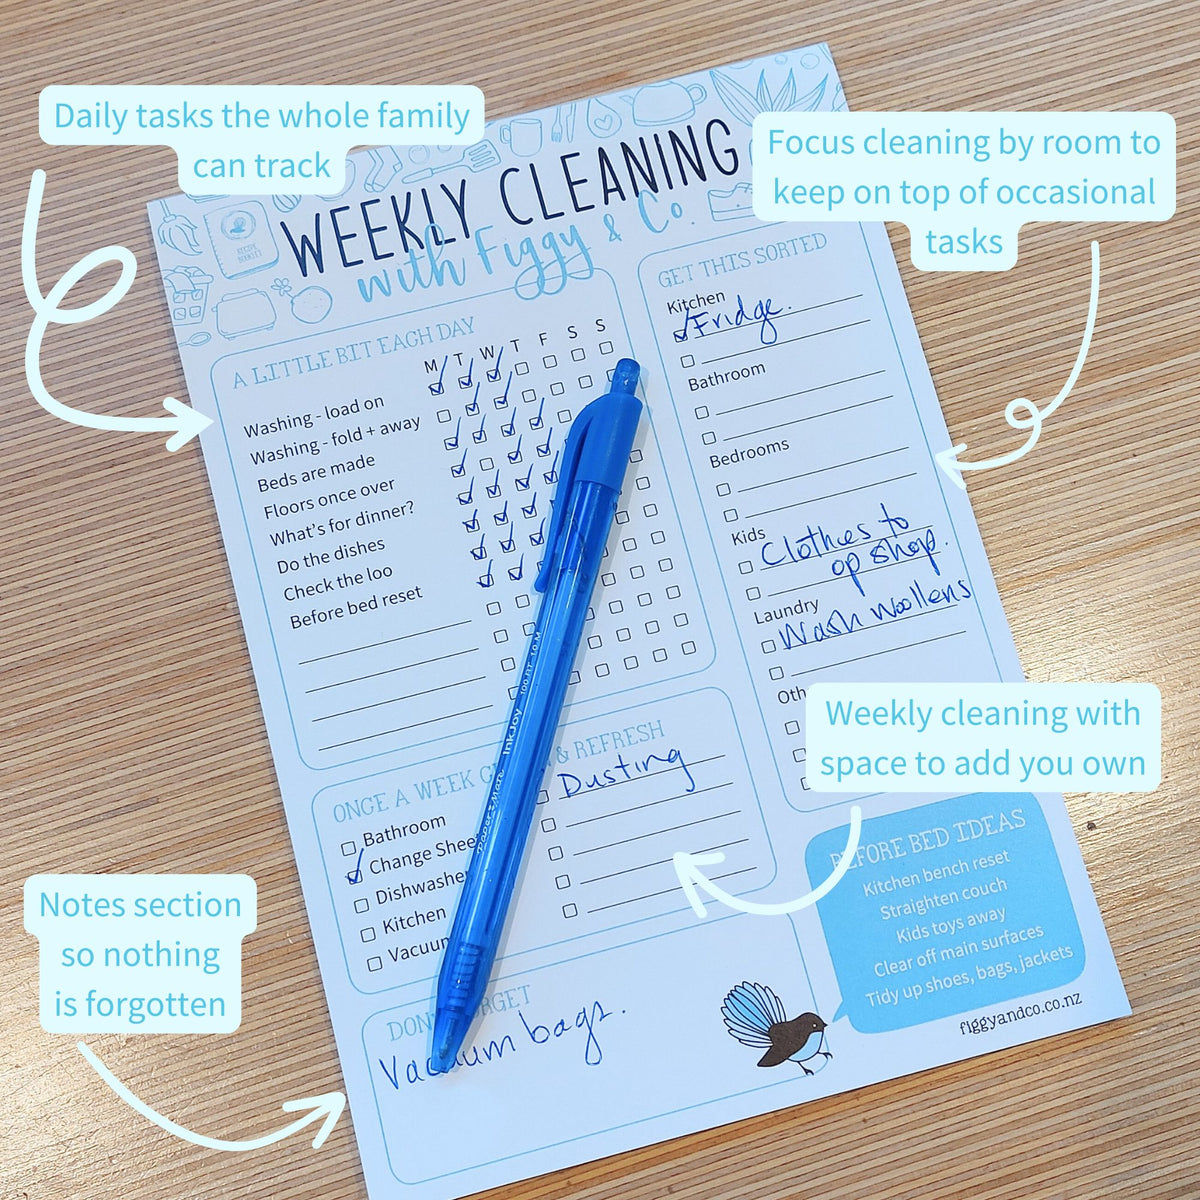 Daily tasks the whole family
can track
Focus cleaning by room to
keep on top of occasional
tasks
WEEKLY CLEANING
with Figgy & Co.
RECIPE
BOOKLET
A LITTLE BIT EACH DAY
M T W T F S S
Washing - load on
Washing - fold + away
Beds are made
Floors once over
What's for dinner?
Do the dishes
Check the loo
Before bed reset
GET THIS SORTED
Kitchen
Fridge.
Bathroom
Bedrooms
Kids
Clothes to
op shop.
Laundry
Wash Woollens
Oth
Weekly cleaning with
space to add you own
ONCE A WEEK & REFRESH
Bathroom
Change Shee
Dishwasher
Kitchen
Vacuum
Dusting
PaperMate InkJoy 100 RT 1.0 M
BEFORE BED IDEAS
Kitchen bench reset
Straighten couch
Kids toys away
Clear off main surfaces
Tidy up shoes, bags, jackets
figgyandco.co.nz
Notes section
so nothing
is forgotten
DON'T FORGET
Vacuum bags.